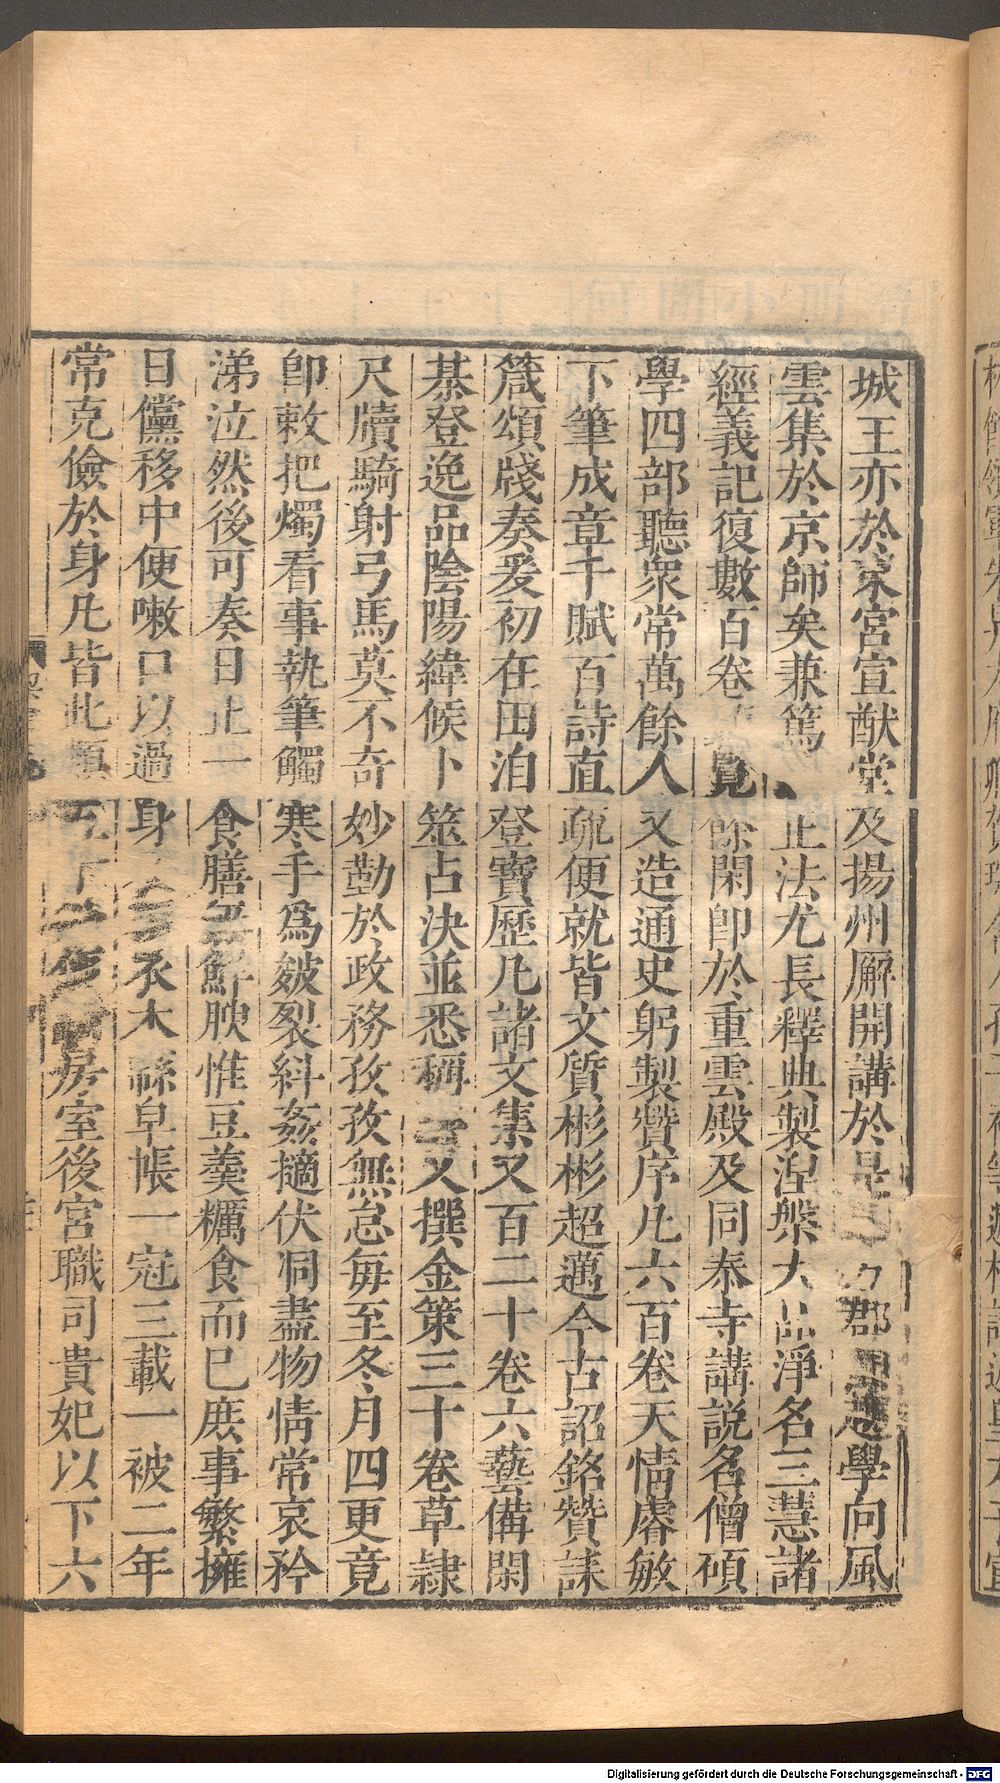 城王亦於東宮宣猷堂及揚州廨開講於是郡學向風
雲集於京師矣兼篤止法尤長釋典製涅槃大品淨名三慧諸
經義記復數百卷覽餘閑卽於重雲殿及同泰寺講說名僧碩
學四部聽眾常萬餘人又造通史躬製贊序凡六百卷天情睿敏
下筆成章千賦百詩直疏便就皆文質彬彬超邁今古詔銘贊誄
箴頌牋奏爰初在田洎登寶歷凡諸文集又百二十卷六藝備閑
棊登逸品陰陽緯候卜筮占決並悉稱又撰金策三十卷草隸
尺牘騎射弓馬莫不奇妙勤於政務孜孜無怠每至冬月四更竟
卽敕把燭看事執筆觸寒手爲皴裂糾姦擿伏洞盡物情常哀矜
涕泣然後可奏日止一食膳無鮮腴惟豆羹糲食而已庶事繁擁
日儻移中便嗽口以過身衣木緜皁帳一冠三載一被二年
常克儉於身凡皆此類房室後宮職司貴妃以下六
Digitalisierung gefördert durch die Deutsche Forschungsgemeinschaft - DFG